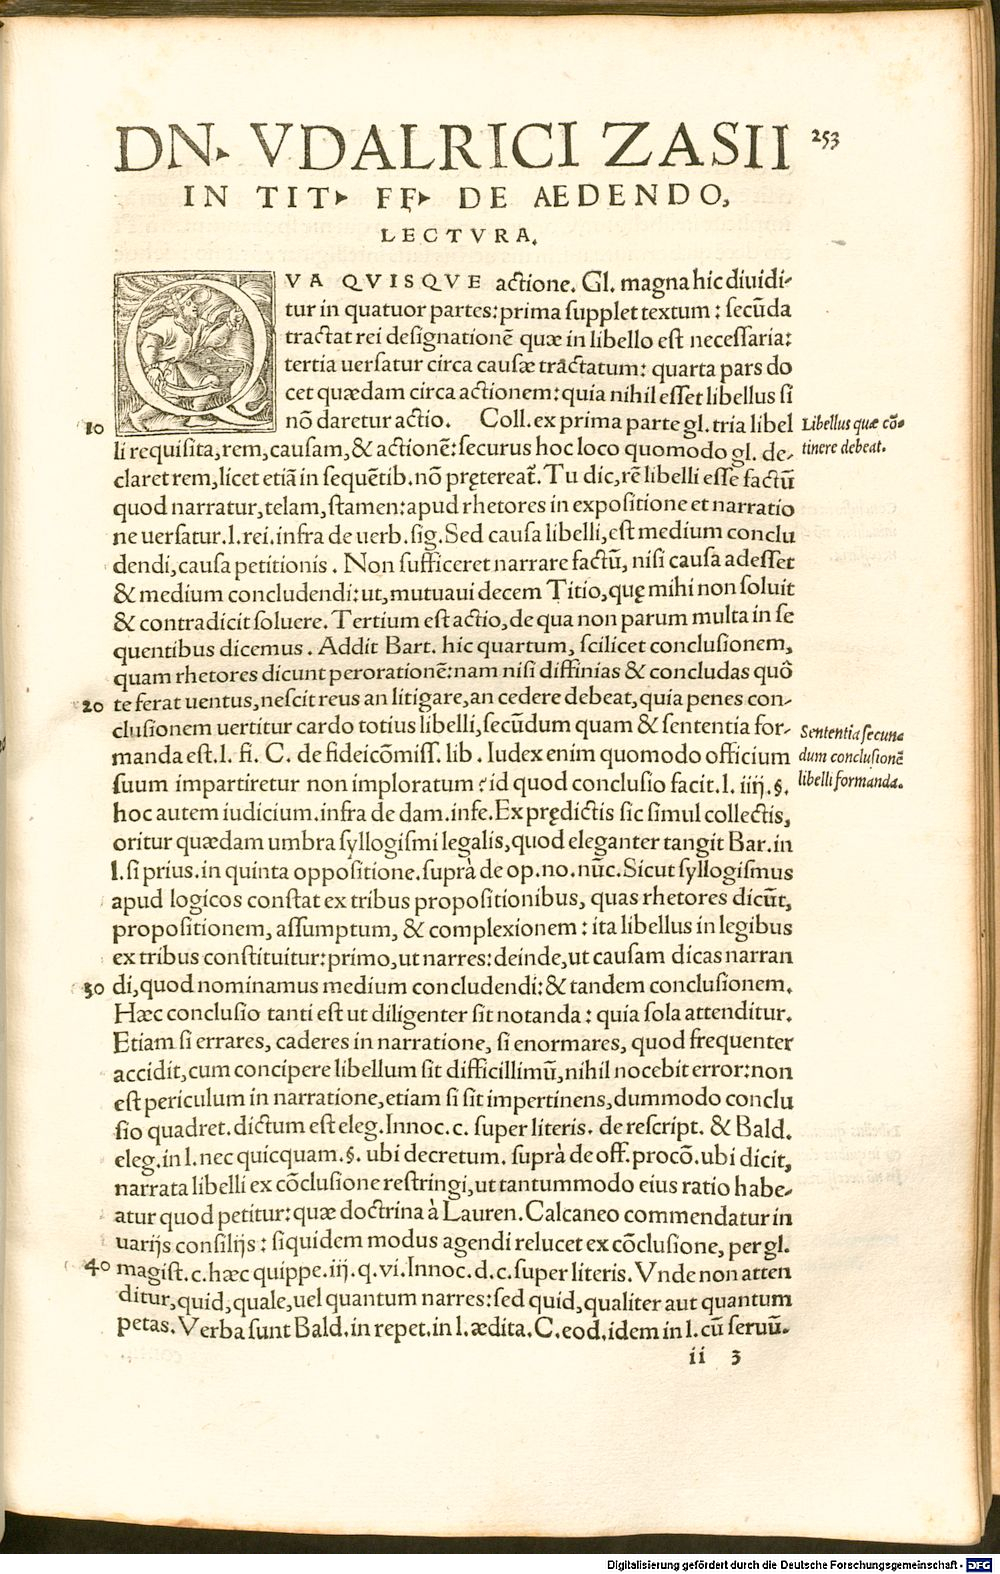 DN. VDALRICI ZASII 253
IN TIT. FF. DE AEDENDO,
LECTVRA.
QVA QVISQVE actione. Gl. magna hic diuidi-
tur in quatuor partes: prima supplet textum: secūda
tractat rei designationē quæ in libello est necessaria:
tertia uersatur circa causæ tractatum: quarta pars do
cet quædam circa actionem: quia nihil esset libellus si
10 nō daretur actio. Coll. ex prima parte gl. tria libel
Libellus quæ cō-
tinere debeat.
li requisita, rem, causam, & actionē: securus hoc loco quomodo gl. de-
claret rem, licet etiā in sequētib. nō prętereat. Tu dic, rē libelli esse factū
quod narratur, telam, stamen: apud rhetores in expositione et narratio
ne uersatur. l. rei. infra de uerb. sig. Sed causa libelli, est medium conclu
dendi, causa petitionis. Non sufficeret narrare factū, nisi causa adesset
& medium concludendi: ut, mutuaui decem Titio, quę mihi non soluit
& contradicit soluere. Tertium est actio, de qua non parum multa in se
quentibus dicemus. Addit Bart. hic quartum, scilicet conclusionem,
quam rhetores dicunt perorationē: nam nisi diffinias & concludas quô
20 te ferat uentus, nescit reus an litigare, an cedere debeat, quia penes con-
clusionem uertitur cardo totius libelli, secūdum quam & sententia for-
Sententia secun-
dum conclusionē
libelli formanda.
manda est. l. fi. C. de fideicōmiss. lib. Iudex enim quomodo officium
suum impartiretur non imploratum? id quod conclusio facit. l. iiij. §.
hoc autem iudicium. infra de dam. infe. Ex prędictis sic simul collectis,
oritur quædam umbra syllogismi legalis, quod eleganter tangit Bar. in
l. si prius. in quinta oppositione. suprà de op. no. nūc. Sicut syllogismus
apud logicos constat ex tribus propositionibus, quas rhetores dicūt,
propositionem, assumptum, & complexionem: ita libellus in legibus
ex tribus constituitur: primo, ut narres: deinde, ut causam dicas narran
30 di, quod nominamus medium concludendi: & tandem conclusionem.
Hæc conclusio tanti est ut diligenter sit notanda: quia sola attenditur.
Etiam si errares, caderes in narratione, si enormares, quod frequenter
accidit, cum concipere libellum sit difficillimū, nihil nocebit error: non
est periculum in narratione, etiam si sit impertinens, dummodo conclu
sio quadret. dictum est eleg. Innoc. c. super literis. de rescript. & Bald.
eleg. in l. nec quicquam. §. ubi decretum. suprà de off. procō. ubi dicit,
narrata libelli ex cōclusione restringi, ut tantummodo eius ratio habe-
atur quod petitur: quæ doctrina à Lauren. Calcaneo commendatur in
uarijs consilijs: siquidem modus agendi relucet ex cōclusione, per gl.
40 magist. c. hæc quippe. iij. q. vi. Innoc. d. c. super literis. Vnde non atten
ditur, quid, quale, uel quantum narres: sed quid, qualiter aut quantum
petas. Verba sunt Bald. in repet. in l. ædita. C. eod. idem in l. cū seruū.
ii 3
Digitalisierung gefördert durch die Deutsche Forschungsgemeinschaft - DFG